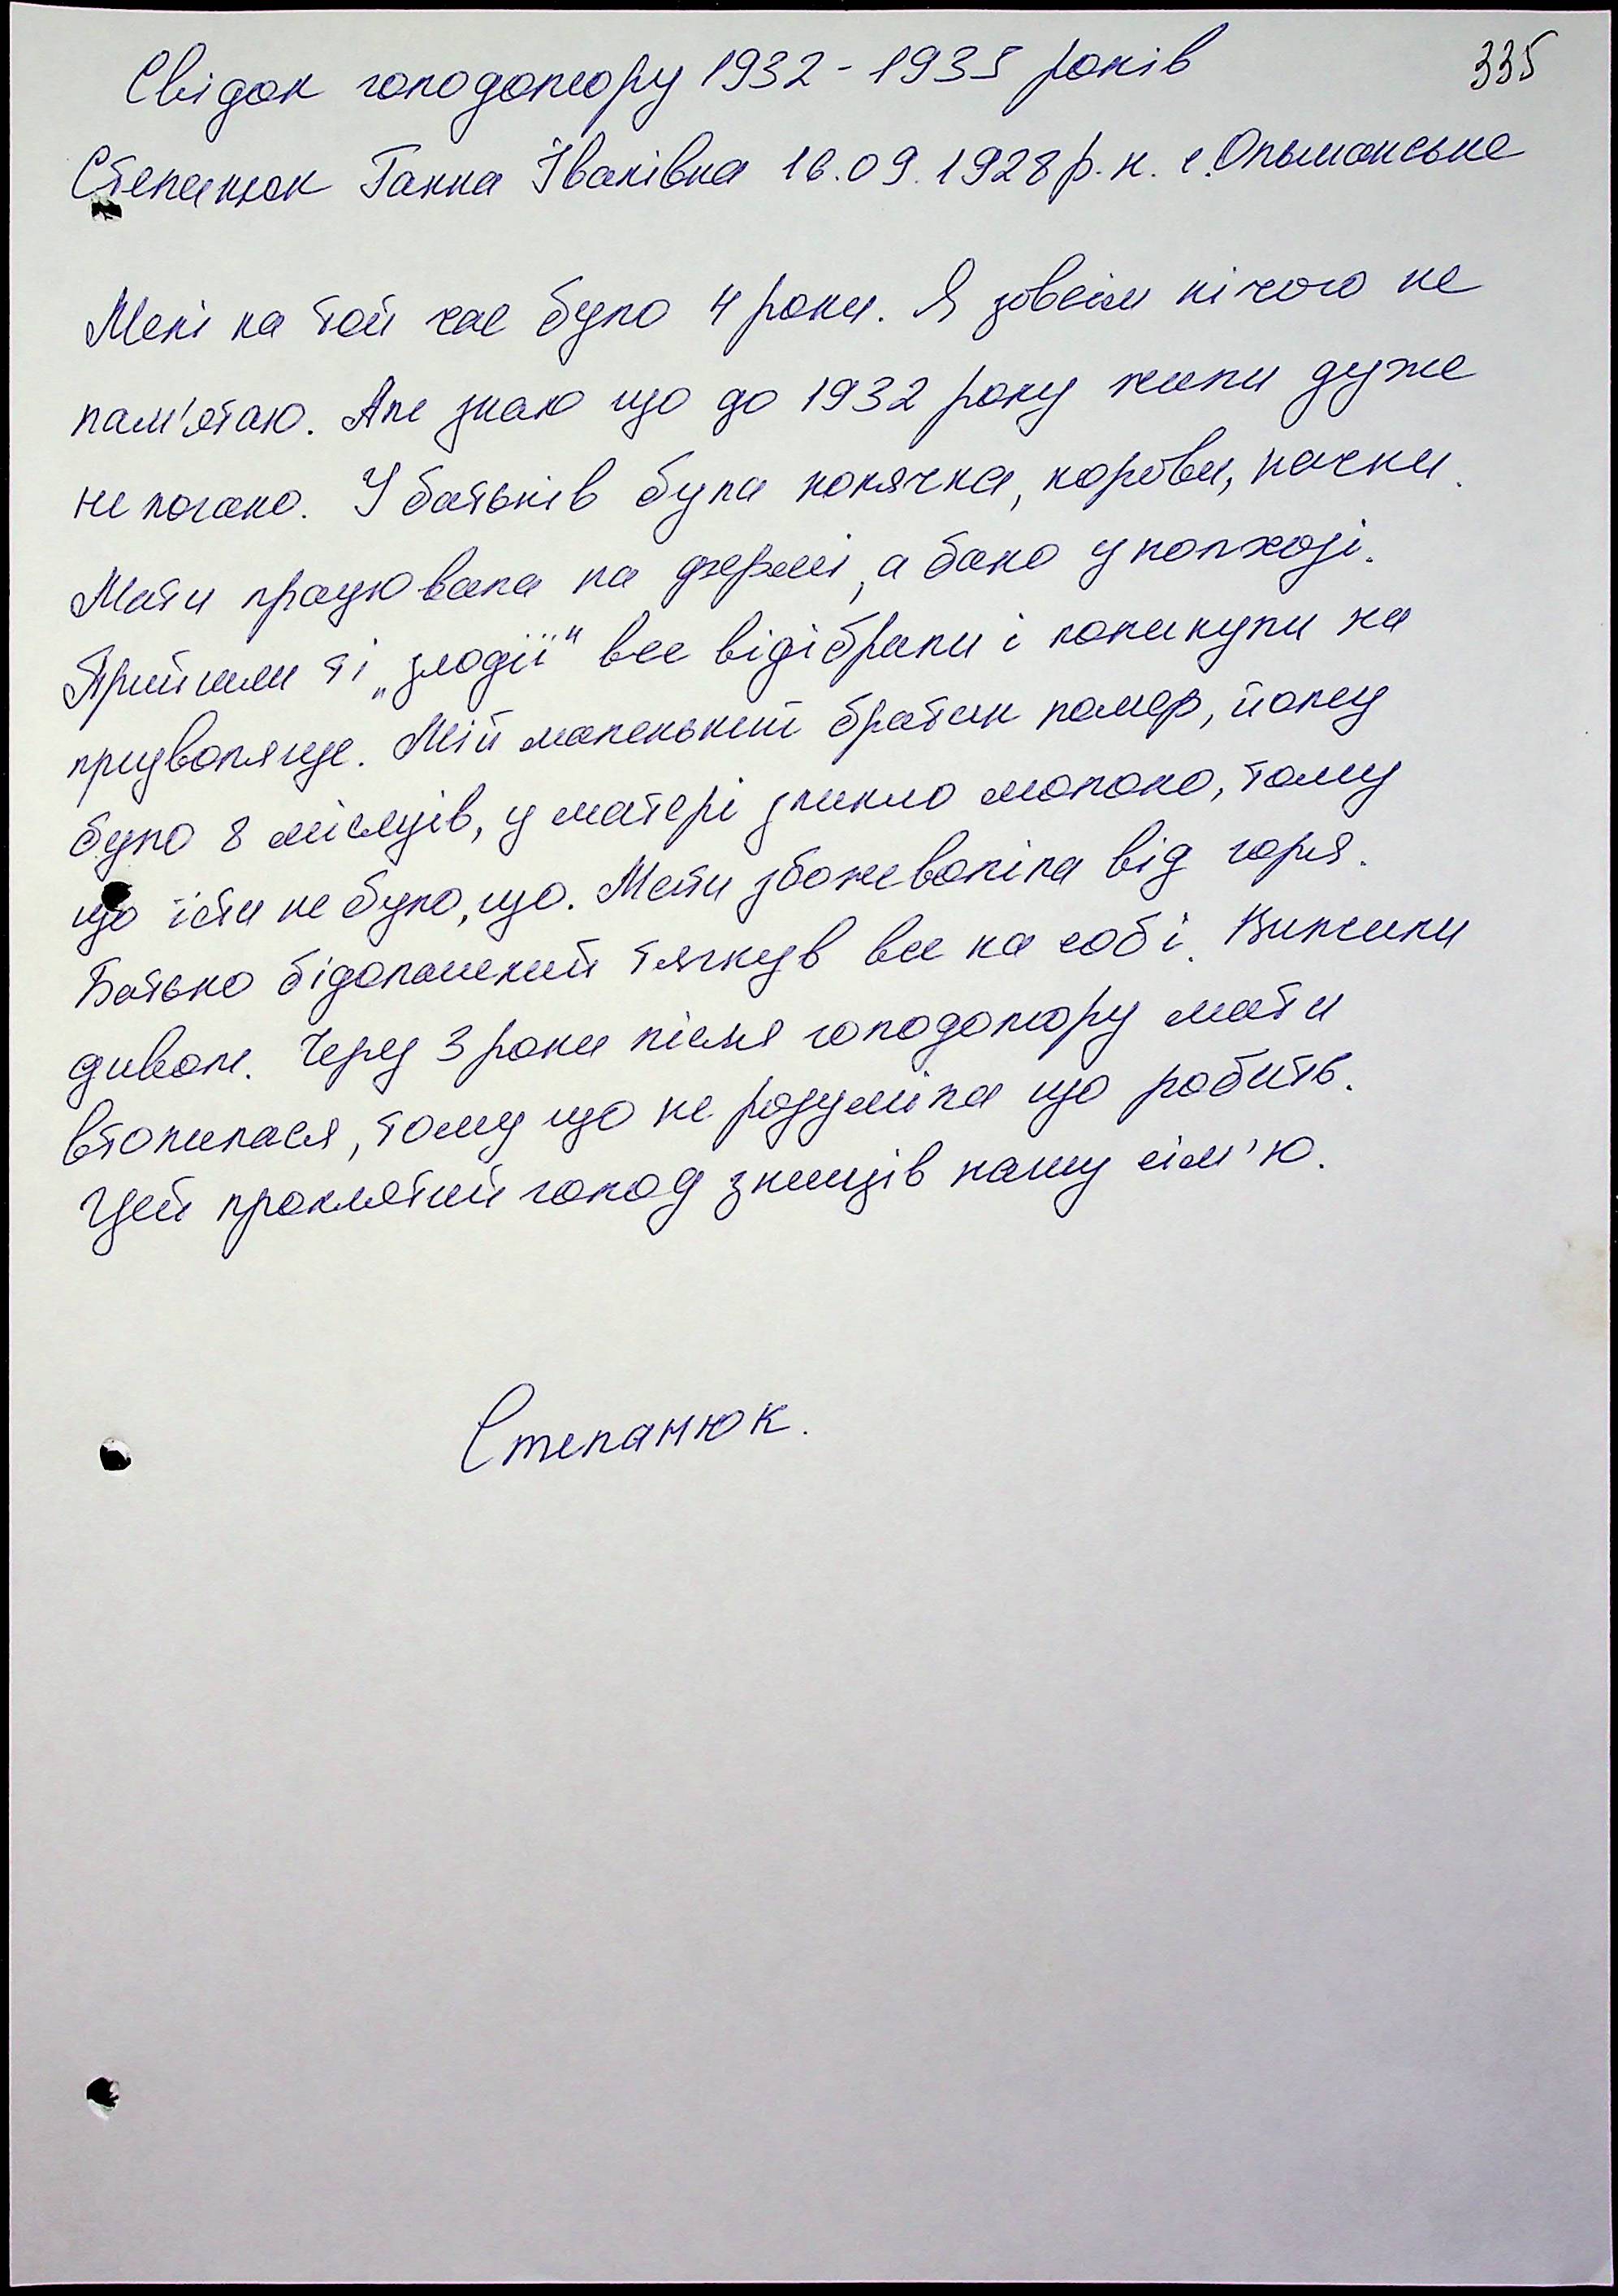 335
Свідок голодомору 1932 - 1933 років
Степанюк Ганна Іванівна 16.09.1928 р. н. с. Ольманське
Мені на той час було 4 роки. Я зовсім нічого не
пам'ятаю. Але знаю що до 1932 року жили дуже
не погано. У батьків була конячка, корови, качки.
Мати працювала на фермі, а бако у колхозі.
Прийшли ті „злодії“ все відібрали і покинули на
призволяще. Мій маленький братик помер, йому
було 8 місяців, у матері зникло молоко, тому
що їсти не було, що. Мати збожеволіла від горя.
Батько бідолашний тягнув все на собі. Вижили
дивом. Через 3 роки після голодомору мати
втопилася, тому що не розуміла що робить.
Цей проклятий голод знищів нашу сім'ю.
Степанюк.